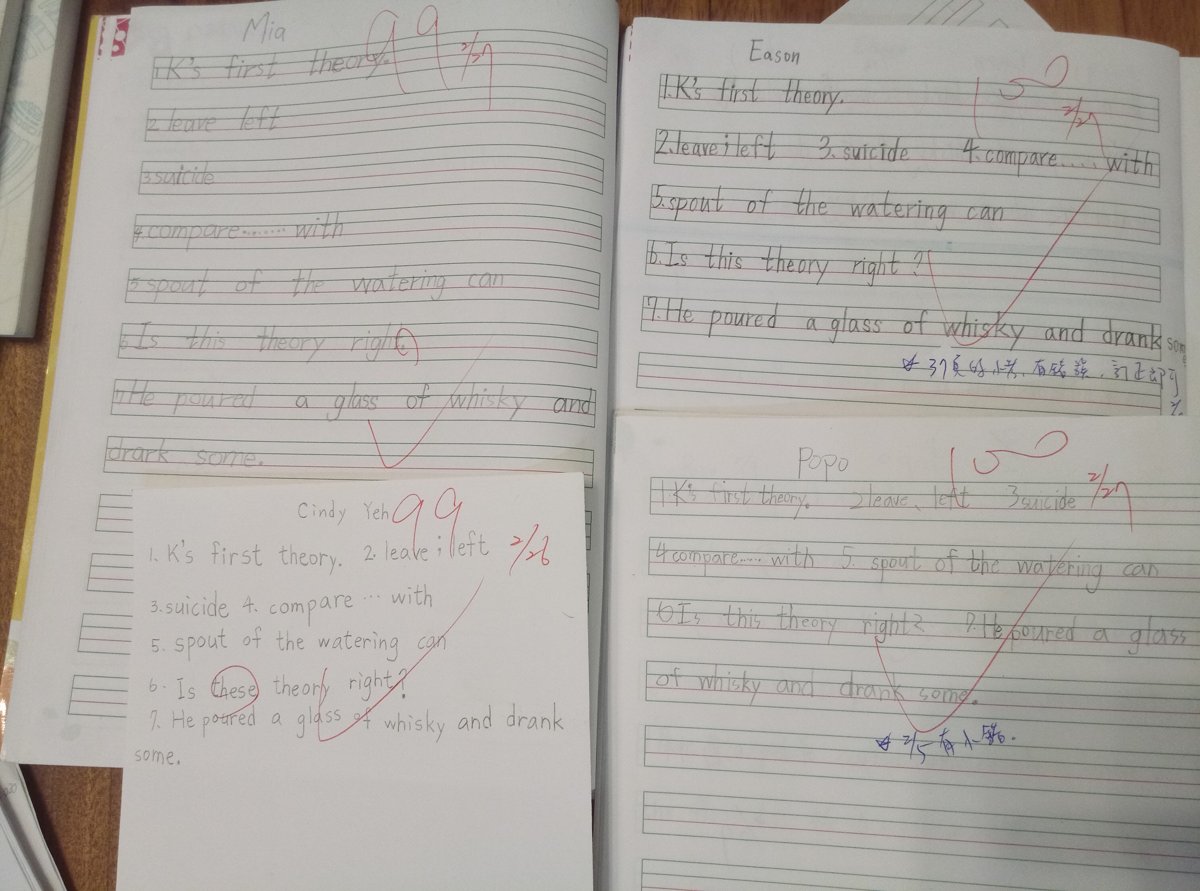 Mia
99
2/27
1.K's first theory.
2.leave left
3.suicide
4.compare……with
5.spout of the watering can
6.Is this theory right
7.He poured a glass of whisky and
drark some.
Cindy Yeh
99
2/26
1. K's first theory. 2. leave ; left
3.suicide 4. compare … with
5. spout of the watering can
6. Is these theory right?
7. He poured a glass of whisky and drank
some.
Eason
100
2/27
1.K's first theory.
2.leave;left 3.suicide 4.compare....with
5.spout of the watering can
6.Is this theory right?
7.He poured a glass of whisky and drank some
37頁的 有錯 訂正即可
Popo
100
2/27
1K's first theory. 2leave, left 3suicide
4compare....with 5. spout of the watering can
6Is this theory right? 7.He poured a glass
of whisky and drank some.
2/5 有小錯.